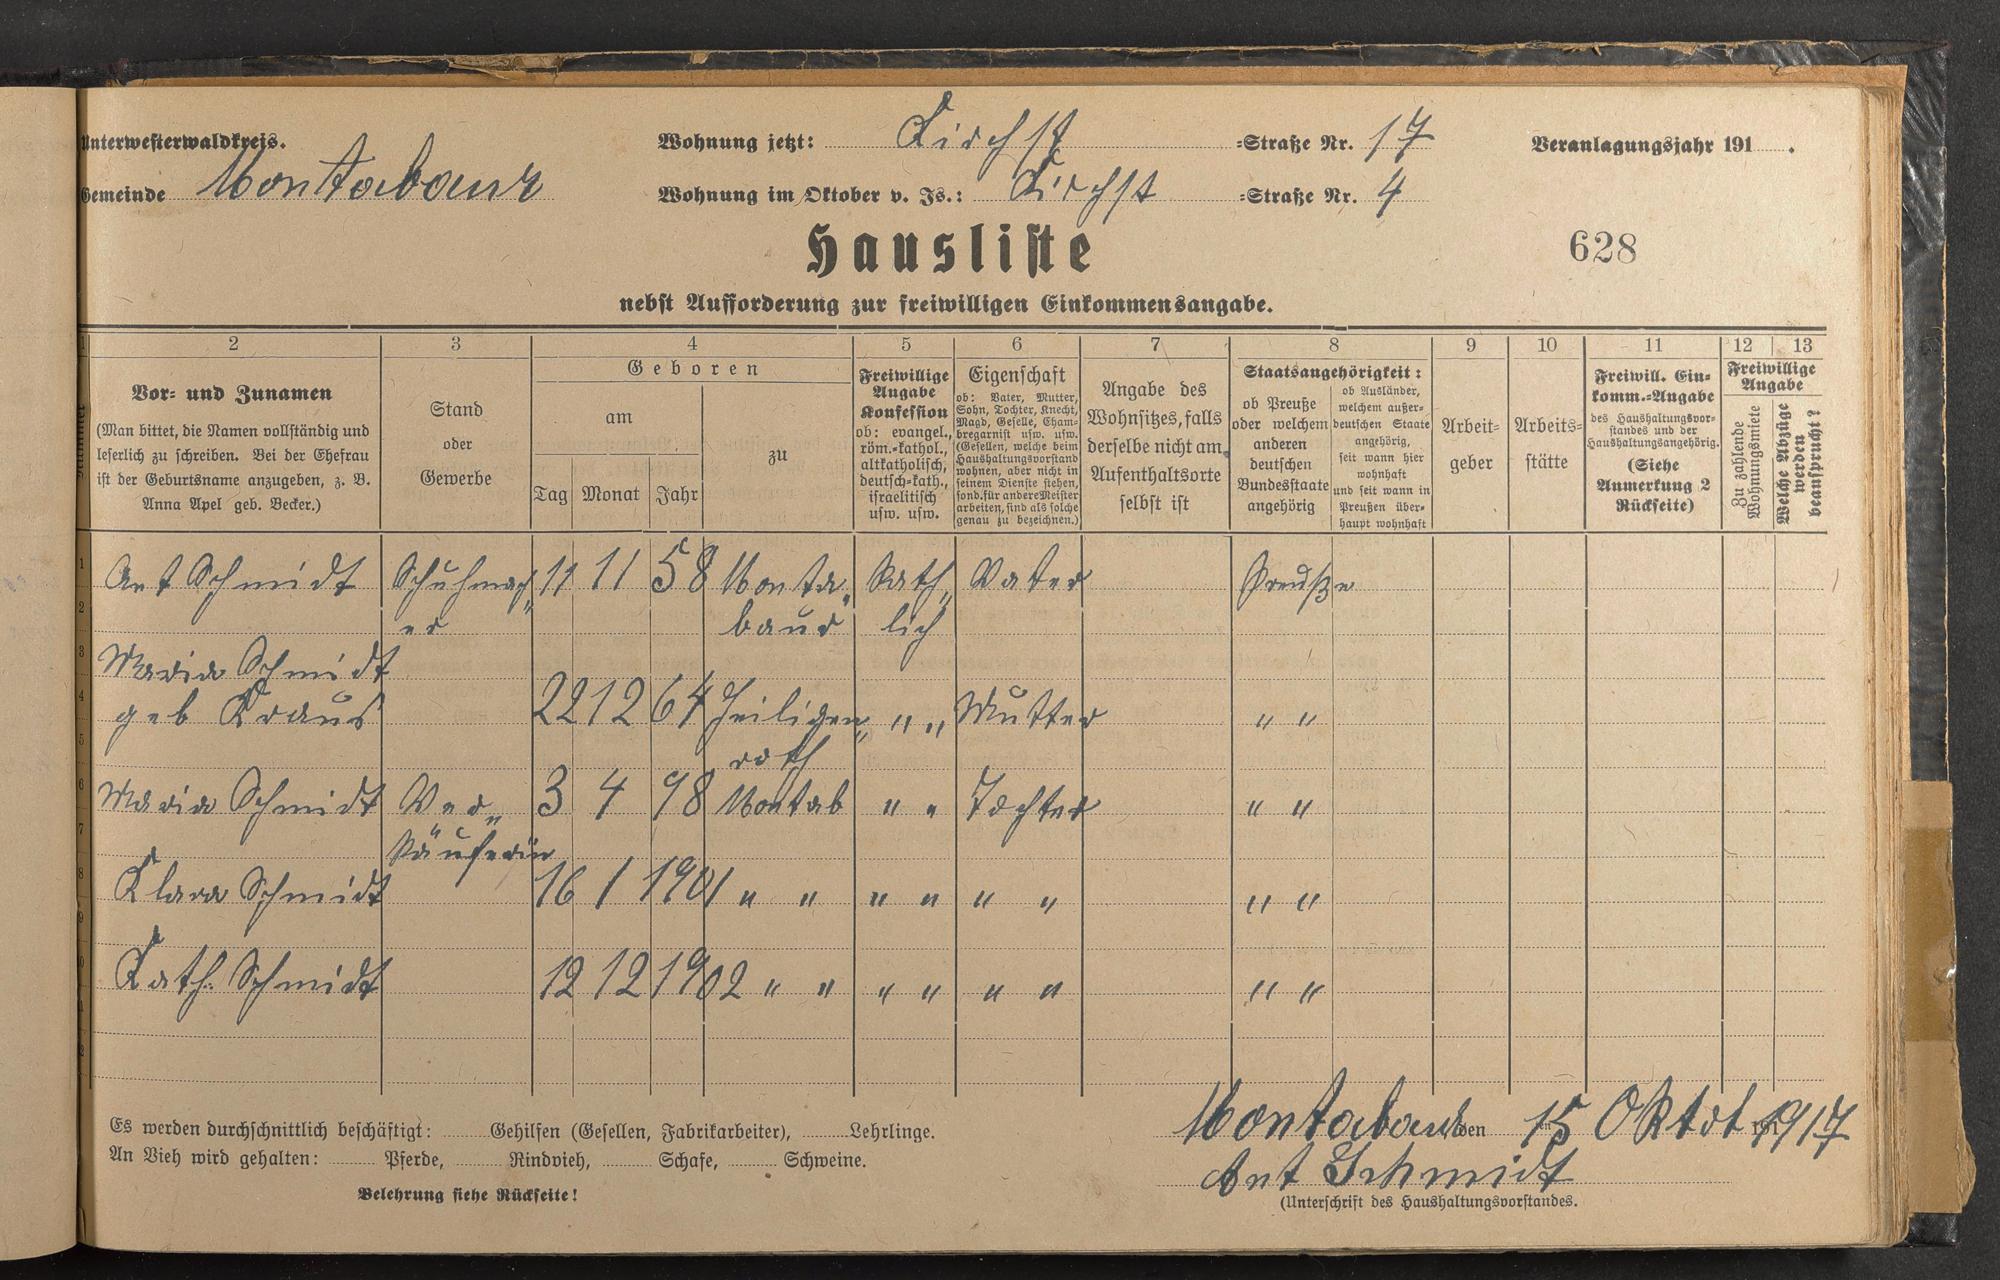 Unterwesterwaldkreis.
Wohnung jetzt: Kirchst =Straße Nr. 17
Veranlagungsjahr 191 .
Gemeinde Montabaur
Wohnung im Oktober v. Js.: Kirchst =Straße Nr. 4
Hausliste
628
nebst Aufforderung zur freiwilligen Einkommensangabe.
2 3 4 5 6 7 8 9 10 11 12 13
Vor- und Zunamen
(Man bittet, die Namen vollständig und
leserlich zu schreiben. Bei der Ehefrau
ist der Geburtsname anzugeben, z. B.
Anna Apel geb. Becker.)
Stand
oder
Gewerbe
Geboren
am
Tag Monat Jahr
zu
Freiwillige
Angabe
Konfession
ob: evangel.,
röm.-kathol.,
altkatholisch,
deutsch-kath.,
israelitisch
usw. usw.
Eigenschaft
ob: Vater, Mutter,
Sohn, Tochter, Knecht,
Magd, Geselle, Cham-
bregarnist usw. usw.
(Gesellen, welche beim
Haushaltungsvorstand
wohnen, aber nicht in
seinem Dienste stehen,
sond. für andere Meister
arbeiten, sind als solche
genau zu bezeichnen.)
Angabe des
Wohnsitzes, falls
derselbe nicht am
Aufenthaltsorte
selbst ist
Staatsangehörigkeit:
ob Preuße
oder welchem
anderen
deutschen
Bundesstaate
angehörig
ob Ausländer,
welchem außer-
deutschen Staate
angehörig,
seit wann hier
wohnhaft
und seit wann in
Preußen über-
haupt wohnhaft
Arbeit-
geber
Arbeits-
stätte
Freiwill. Ein-
komm.-Angabe
des Haushaltungsvor-
standes und der
Haushaltungsangehörig.
(Siehe
Anmerkung 2
Rückseite)
Freiwillige
Angabe
Zu zahlende
Wohnungsmiete
Welche Abzüge
werden
beansprucht?
1 Ant Schmidt Schuhmach„ 11 11 58 Monta„ Kath„ Vater Preuße
2 er baur lich
3 Maria Schmidt
4 geb Kraus 22 12 64 Heiligen„ „ „ Mutter „ „
5 roth
6 Maria Schmidt Ver„ 3 4 98 Montab „ „ Tochter „ „
7 käuferin
8 Klara Schmidt 16 1 1901 „ „ „ „ „ „ „ „
9
Kath. Schmidt 12 12 1902 „ „ „ „ „ „ „ „
Es werden durchschnittlich beschäftigt: Gehilfen (Gesellen, Fabrikarbeiter), Lehrlinge.
An Vieh wird gehalten: Pferde, Rindvieh, Schafe, Schweine.
Belehrung siehe Rückseite!
Montabaur den 15 Oktbt 1917
Ant Schmidt
(Unterschrift des Haushaltungsvorstandes.